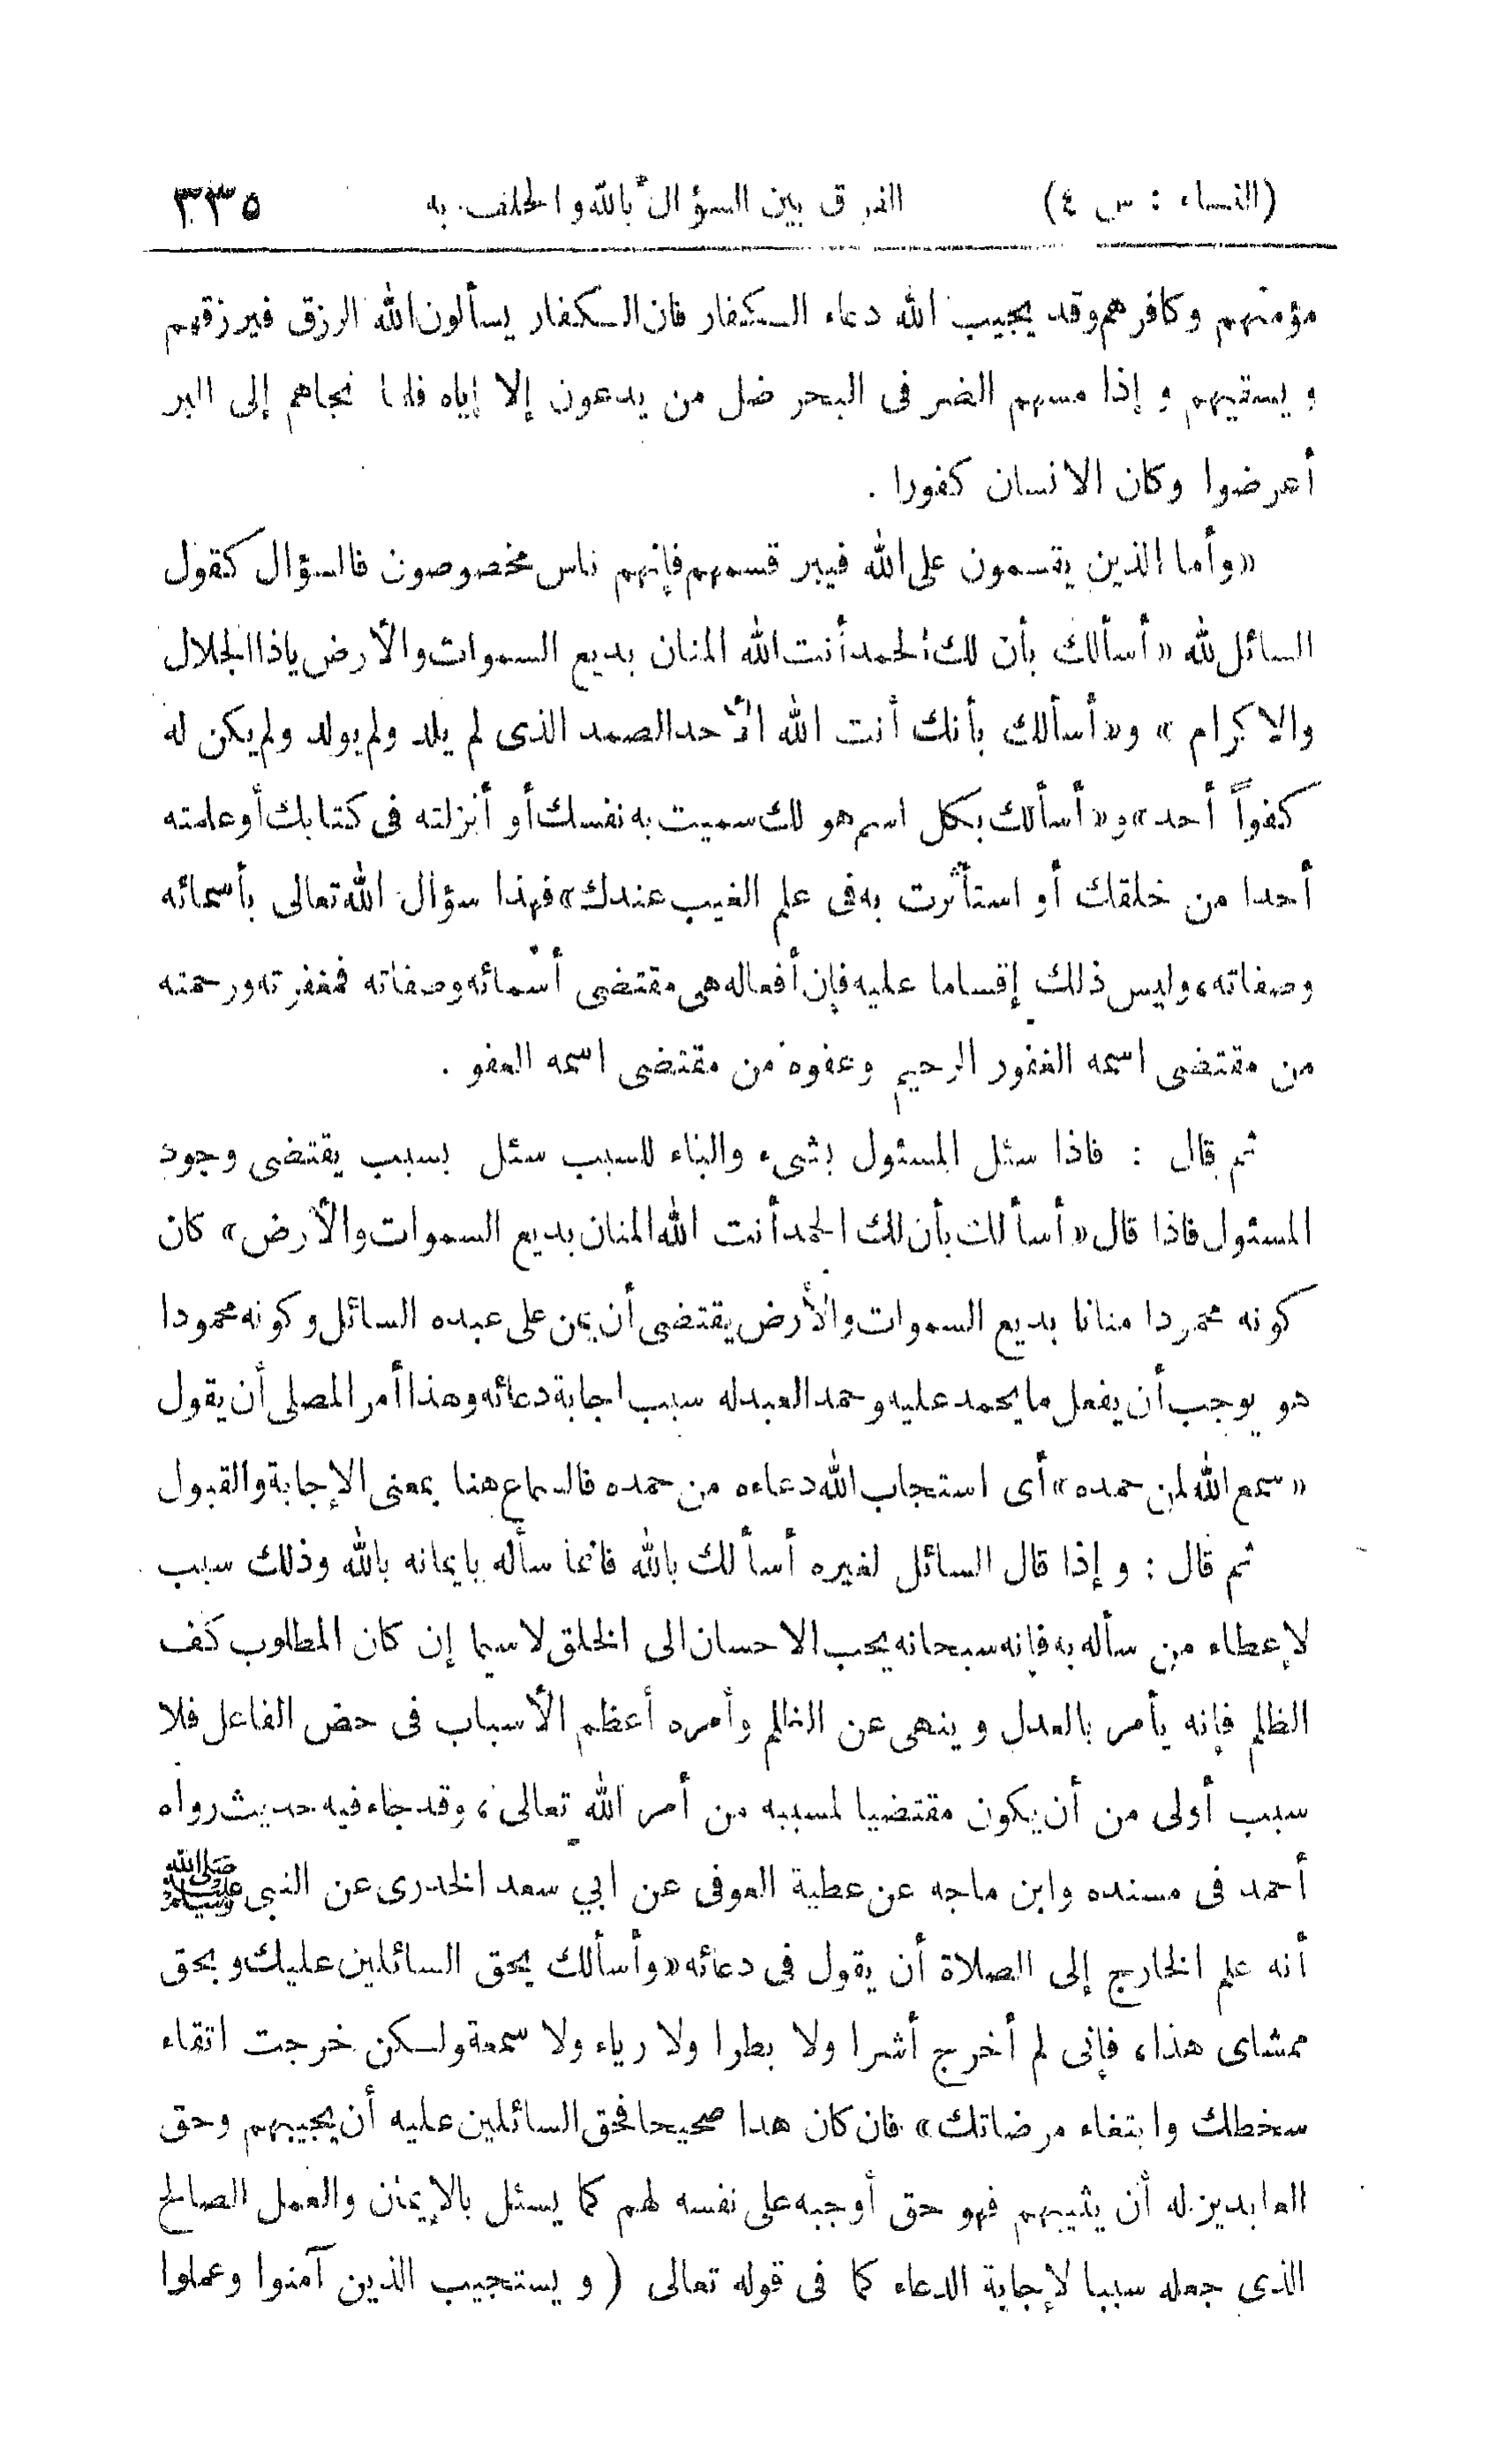 (النساء : س ٤) الفرق بين السؤال بالله والحلف به ٣٣٥
مؤمنهم وكافرهم وقد يجيب الله دعاء الكفار فان الكفار يسألون الله الرزق فيرزقهم
ويسقيهم وإذا مسهم الضر فى البحر ضل من يدعون إلا إياه فلما نجاهم إلى البر
أعرضوا وكان الانسان كفورا .
«وأما الذين يقسمون على الله فيبر قسمهم فإنهم ناس مخصوصون فالسؤال كقول
السائل لله «أسألك بأن لك الحمد أنت الله المنان بديع السموات والأرض ياذا الجلال
والاكرام» و«أسألك بأنك أنت الله الأحد الصمد الذى لم يلد ولم يولد ولم يكن له
كفواً أحد» و«أسألك بكل اسم هو لك سميت به نفسك أو أنزلته فى كتابك أو علمته
أحدا من خلقك أو استأثرت به فى علم الغيب عندك» فهذا سؤال الله تعالى بأسمائه
وصفاته، وليس ذلك إقساما عليه فإن أفعاله هى مقتضى أسمائه وصفاته فمغفرته ورحمته
من مقتضى اسمه الغفور الرحيم وعفوه من مقتضى اسمه العفو .
ثم قال : فاذا سئل المسئول بشىء والباء للسبب سئل بسبب يقتضى وجود
المسئول فاذا قال «أسألك بأن لك الحمد أنت الله المنان بديع السموات والأرض» كان
كونه محمودا منانا بديع السموات والأرض يقتضى أن يمن على عبده السائل وكونه محمودا
هو يوجب أن يفعل ما يحمد عليه وحمد العبد له سبب اجابة دعائه وهذا أمر المصلى أن يقول
«سمع الله لمن حمده» أى استجاب الله دعاءه من حمده فالسماع هنا بمعنى الإجابة والقبول
ثم قال : وإذا قال السائل لغيره أسألك بالله فانما سأله بايمانه بالله وذلك سبب
لإعطاء من سأله به فإنه سبحانه يحب الاحسان الى الخلق لا سيما إن كان المطلوب كف
الظلم فإنه يأمر بالعدل وينهى عن الظلم وأمره أعظم الأسباب فى حض الفاعل فلا
سبب أولى من أن يكون مقتضيا لمسببه من أمر الله تعالى، وقد جاء فيه حديث رواه
أحمد فى مسنده وابن ماجه عن عطية العوفى عن ابي سعد الخدرى عن النبى ﷺ
أنه علم الخارج إلى الصلاة أن يقول فى دعائه «وأسألك بحق السائلين عليك وبحق
ممشاى هذا، فإنى لم أخرج أشرا ولا بطرا ولا رياء ولا سمعة ولكن خرجت اتقاء
سخطك وابتغاء مرضاتك» فان كان هدا صحيحا فحق السائلين عليه أن يجيبهم وحق
العابدين له أن يثيبهم فهو حق أوجبه على نفسه لهم كما يسئل بالإيمان والعمل الصالح
الذى جعله سببا لإجابة الدعاء كما فى قوله تعالى ( ويستجيب الذين آمنوا وعملوا